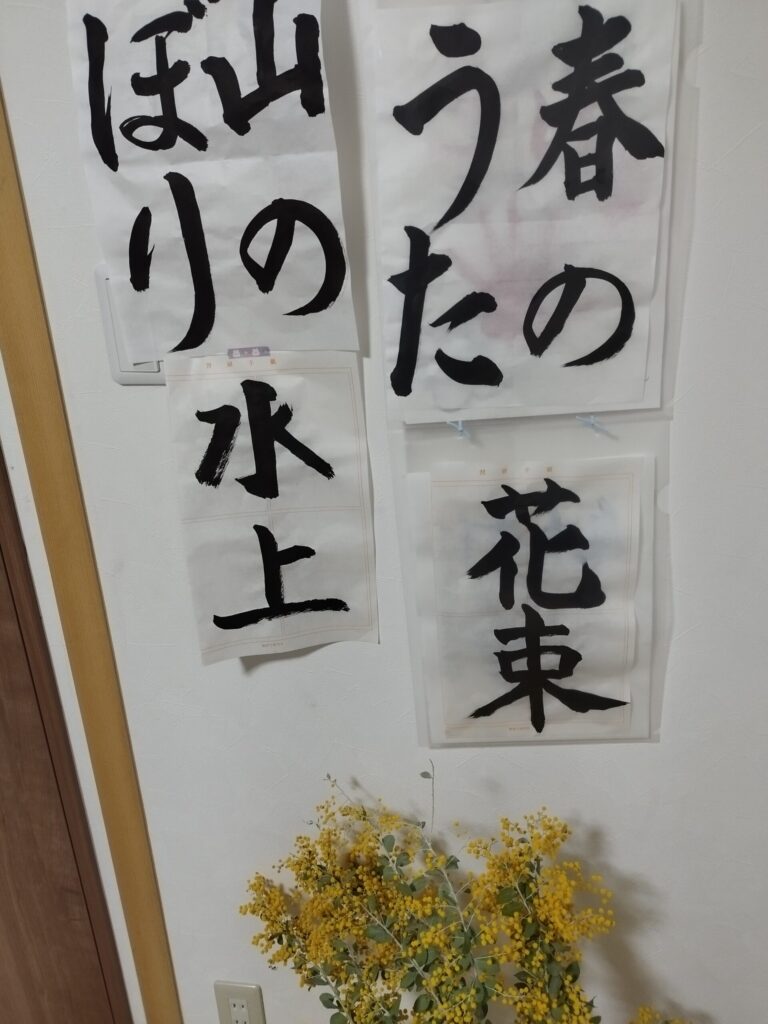 春の
うた
花束
山の
ぼり
水上